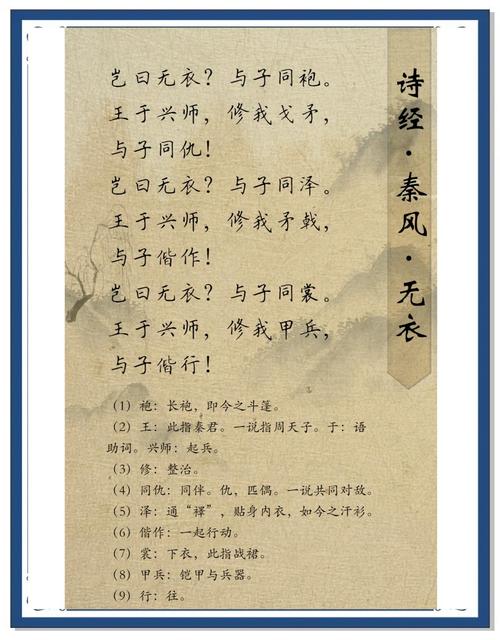 诗经·秦风·无衣
岂曰无衣？与子同袍。
王于兴师，修我戈矛，
与子同仇！
岂曰无衣？与子同泽。
王于兴师，修我矛戟，
与子偕作！
岂曰无衣？与子同裳。
王于兴师，修我甲兵，
与子偕行！
（1）袍：长袍，即今之斗篷。
（2）王：此指秦君。一说指周天子。于：语
助词。兴师：起兵。
（3）修：整治。
（4）同仇：同伴。仇，匹偶。一说共同对敌。
（5）泽：通“襗”，贴身内衣，如今之汗衫。
（6）偕作：一起行动。
（7）裳：下衣，此指战裙。
（8）甲兵：铠甲与兵器。
（9）行：往。